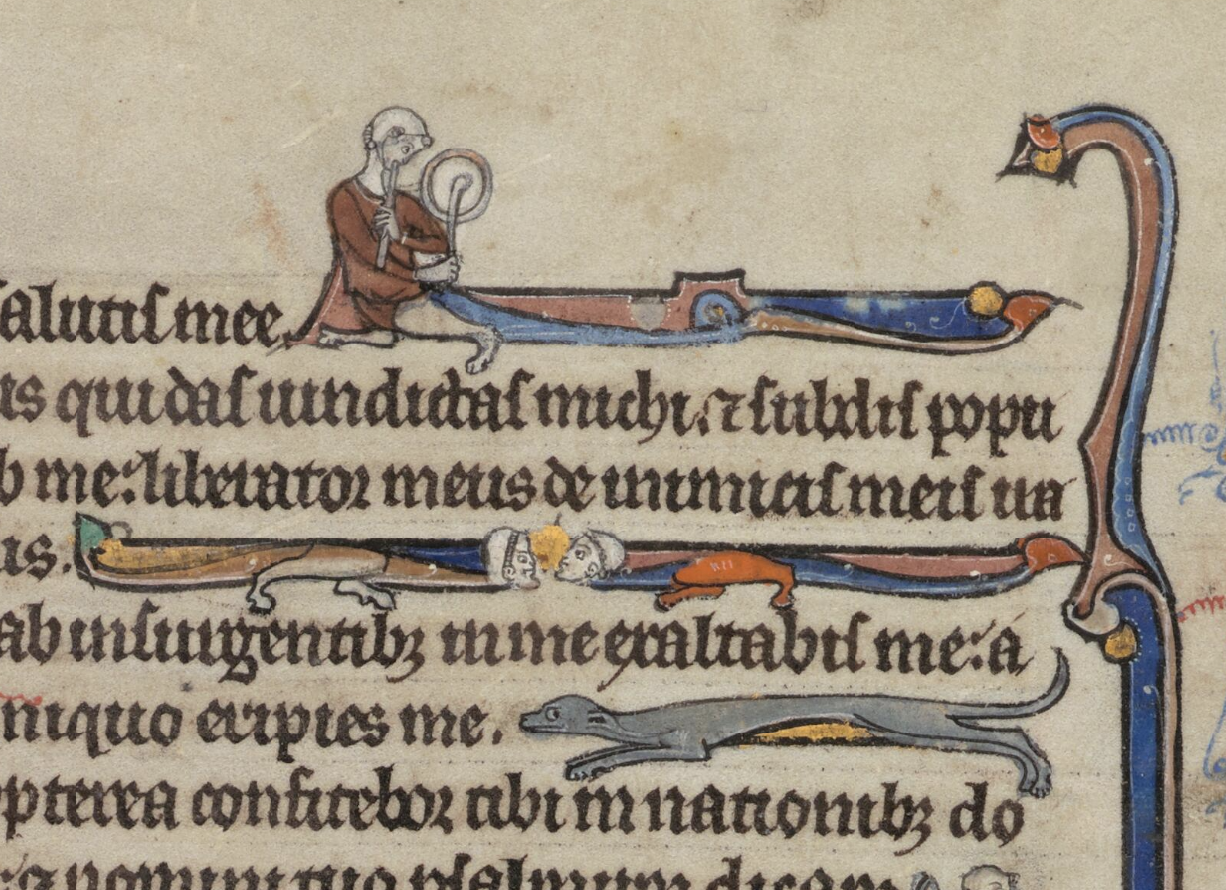 salutis mee
us qui das uindictas michi. ⁊ subdis popu
b me: liberator meus de inimicis meis ira
is.
ab insurgentibꝫ in me exaltabis me: a
niquo eripies me.
pterea confitebor tibi in nationibꝫ do
⁊ nomini tuo psalmum dicam